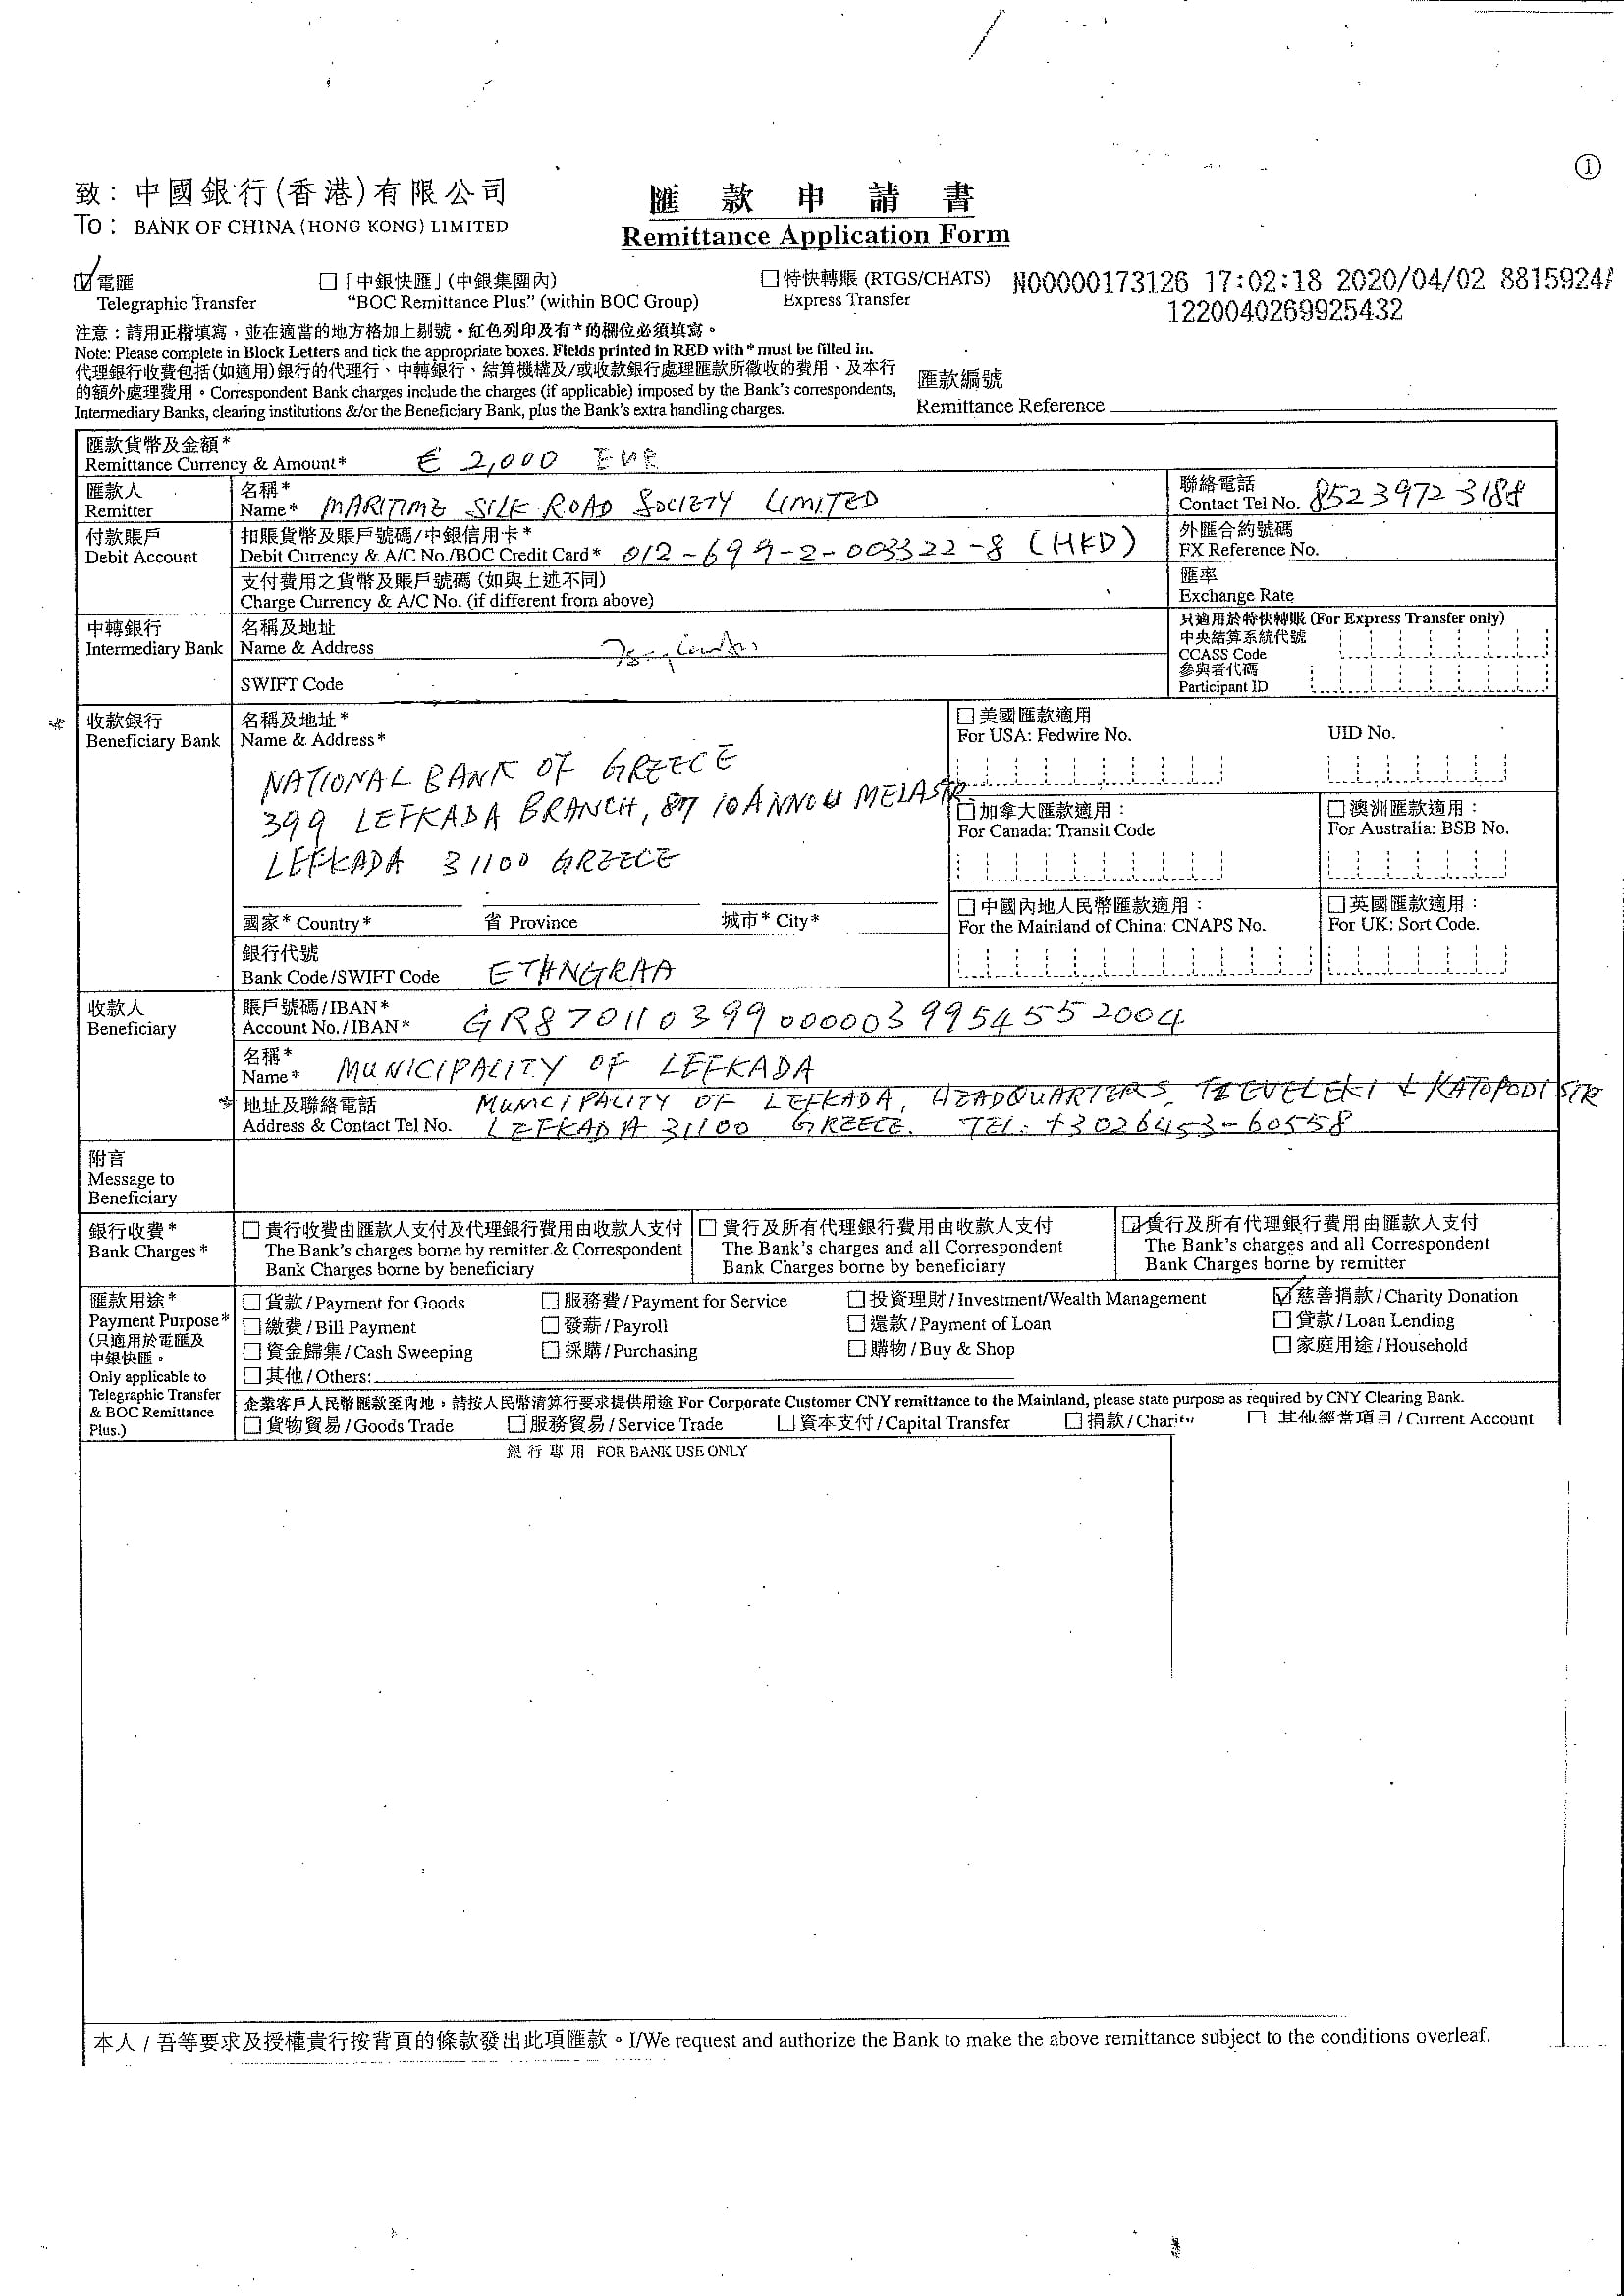 ①
致：中國銀行(香港)有限公司
To： BANK OF CHINA (HONG KONG) LIMITED
匯款申請書
Remittance Application Form
電匯
Telegraphic Transfer
「中銀快匯」(中銀集團內)
“BOC Remittance Plus” (within BOC Group)
特快轉賬 (RTGS/CHATS)
Express Transfer
N00000173126 17:02:18 2020/04/02 8815924
1220040269925432
注意：請用正楷填寫，並在適當的地方格加上剔號。紅色列印及有*的欄位必須填寫。
Note: Please complete in Block Letters and tick the appropriate boxes. Fields printed in RED with * must be filled in.
代理銀行收費包括(如適用)銀行的代理行、中轉銀行、結算機構及/或收款銀行處理匯款所徵收的費用、及本行
的額外處理費用。Correspondent Bank charges include the charges (if applicable) imposed by the Bank's correspondents,
Intermediary Banks, clearing institutions &/or the Beneficiary Bank, plus the Bank's extra handling charges.
匯款編號
Remittance Reference
匯款貨幣及金額*
Remittance Currency & Amount* € 2,000 EUR
匯款人
Remitter
名稱*
Name* MARITIME SILK ROAD SOCIETY LIMITED
聯絡電話
Contact Tel No. 852 3972 3188
付款賬戶
Debit Account
扣賬貨幣及賬戶號碼/中銀信用卡*
Debit Currency & A/C No./BOC Credit Card* 012-699-2-003322-8 (HKD)
外匯合約號碼
FX Reference No.
支付費用之貨幣及賬戶號碼 (如與上述不同)
Charge Currency & A/C No. (if different from above)
匯率
Exchange Rate
中轉銀行
Intermediary Bank
名稱及地址
Name & Address
SWIFT Code
只適用於特快轉賬 (For Express Transfer only)
中央結算系統代號
CCASS Code
參與者代碼
Participant ID
*
收款銀行
Beneficiary Bank
名稱及地址*
Name & Address*
NATIONAL BANK OF GREECE
399 LEFKADA BRANCH, 87 IOANNOU MELA STR
LEFKADA 31100 GREECE
國家* Country*
省 Province
城市* City*
美國匯款適用
For USA: Fedwire No.
UID No.
加拿大匯款適用：
For Canada: Transit Code
澳洲匯款適用：
For Australia: BSB No.
中國內地人民幣匯款適用：
For the Mainland of China: CNAPS No.
英國匯款適用：
For UK: Sort Code.
銀行代號
Bank Code/SWIFT Code ETHNGRAA
收款人
Beneficiary
賬戶號碼/IBAN*
Account No./IBAN* GR8701103990000039954552004
名稱*
Name* MUNICIPALITY OF LEFKADA
*
地址及聯絡電話 MUNICIPALITY OF LEFKADA, HEADQUARTERS, TZEVELEKI & KATOPODI STR
Address & Contact Tel No. LEFKADA 31100 GREECE. TEL: +3026453-60558
附言
Message to
Beneficiary
銀行收費*
Bank Charges*
貴行收費由匯款人支付及代理銀行費用由收款人支付
The Bank's charges borne by remitter & Correspondent
Bank Charges borne by beneficiary
貴行及所有代理銀行費用由收款人支付
The Bank's charges and all Correspondent
Bank Charges borne by beneficiary
貴行及所有代理銀行費用由匯款人支付
The Bank's charges and all Correspondent
Bank Charges borne by remitter
匯款用途*
Payment Purpose*
(只適用於電匯及
中銀快匯。
Only applicable to
Telegraphic Transfer
& BOC Remittance
Plus.)
貨款/Payment for Goods 服務費/Payment for Service 投資理財/Investment/Wealth Management 慈善捐款/Charity Donation
繳費/Bill Payment 發薪/Payroll 還款/Payment of Loan 貸款/Loan Lending
資金歸集/Cash Sweeping 採購/Purchasing 購物/Buy & Shop 家庭用途/Household
其他/Others:
企業客戶人民幣匯款至內地，請按人民幣清算行要求提供用途 For Corporate Customer CNY remittance to the Mainland, please state purpose as required by CNY Clearing Bank.
貨物貿易/Goods Trade 服務貿易/Service Trade 資本支付/Capital Transfer 捐款/Charity 其他經常項目/Current Account
銀行專用 FOR BANK USE ONLY
本人/吾等要求及授權貴行按背頁的條款發出此項匯款。I/We request and authorize the Bank to make the above remittance subject to the conditions overleaf.